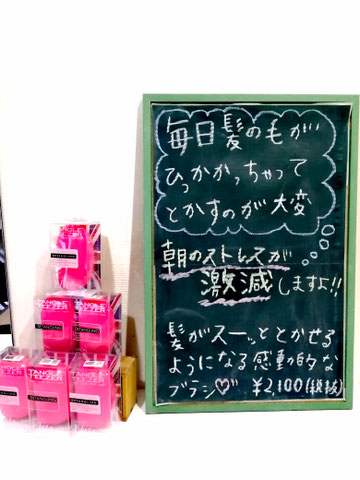 毎日髪の毛が
ひっかかっちゃって
とかすのが大変
朝のストレスが
激減しますよ!!
髪がスーッととかせる
ようになる感動的な
ブラシ♡ ¥2,100(税抜)
TANGLE
TEEZER
DETANGLING
TANGLE
TEEZER
DETANGLING
TANGLE
TEEZER
DETANGLING